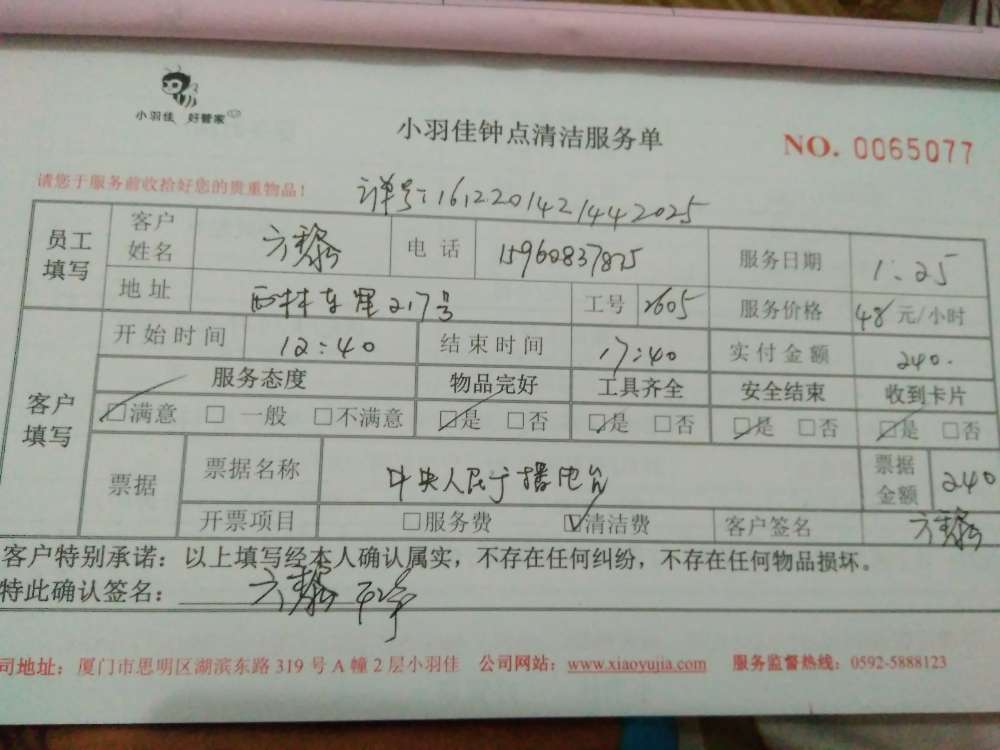 小羽佳 好管家
小羽佳钟点清洁服务单
NO. 0065077
请您于服务前收拾好您的贵重物品！
详号：1612201421442025
员工填写 客户姓名 方黎 电话 服务日期 1:25
地址 217号 工号 2605 服务价格 48元/小时
客户填写 开始时间 12:40 结束时间 17:40 实付金额 240.
服务态度 物品完好 工具齐全 安全结束 收到卡片
☑满意 □一般 □不满意 ☑是 □否 ☑是 □否 ☑是 □否 ☑是 □否
票据 票据名称 中央人民广播电台 票据金额 240
开票项目 □服务费 ☑清洁费 客户签名 方黎
客户特别承诺：以上填写经本人确认属实，不存在任何纠纷，不存在任何物品损坏。
特此确认签名：方黎
司地址：厦门市思明区湖滨东路 319 号 A 幢 2 层小羽佳 公司网站：www.xiaoyujia.com 服务监督热线：0592-5888123